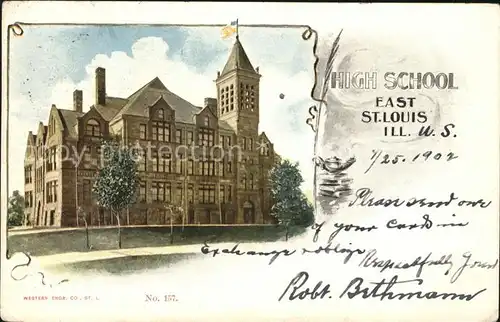 HIGH SCHOOL
EAST
ST. LOUIS
ILL. U. S.
1/25. 1902
Please send one
of your cards in
exchange & oblige
Respectfully Yours
Robt. Bethmann
WESTERN ENGR. CO., ST. L.
No. 157.